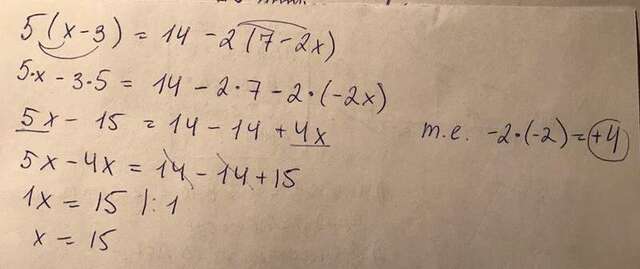 5(x-3) = 14 - 2(7-2x)
5·x - 3·5 = 14 - 2·7 - 2·(-2x)
5x - 15 = 14 - 14 + 4x т.е. -2·(-2)=+4
5x - 4x = 14 - 14 + 15
1x = 15 |:1
x = 15